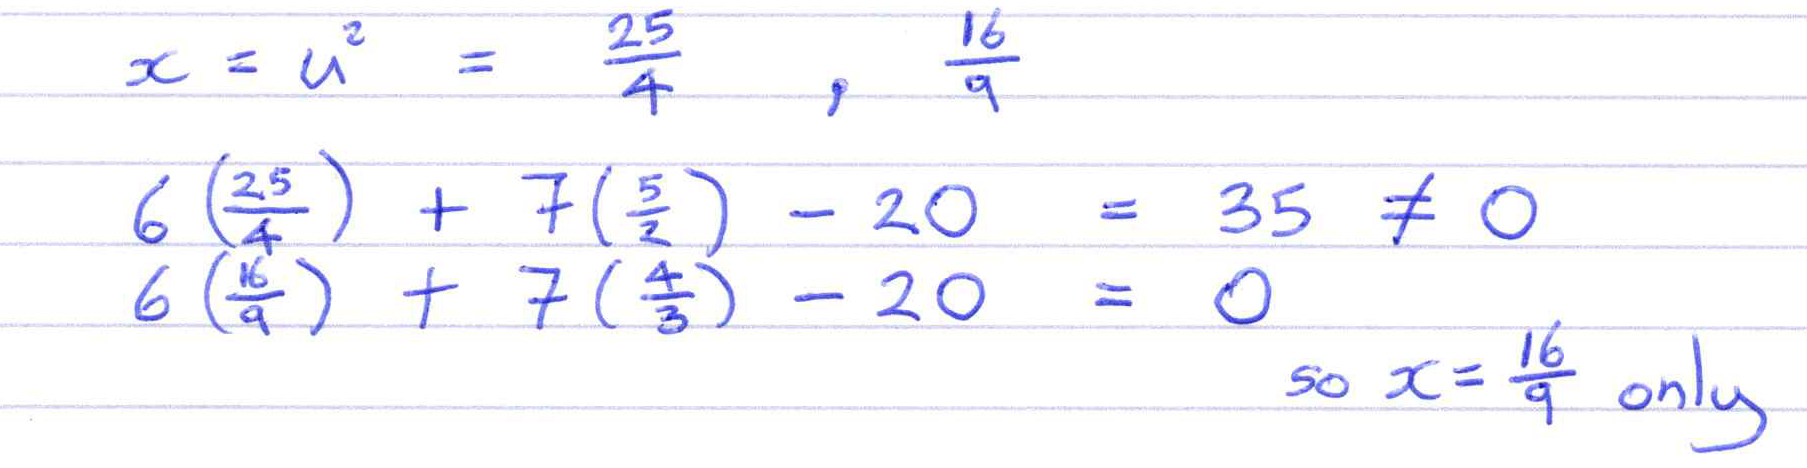 x = u² = 25/4 , 16/9
6(25/4) + 7(5/2) - 20 = 35 ≠ 0
6(16/9) + 7(4/3) - 20 = 0
so x = 16/9 only